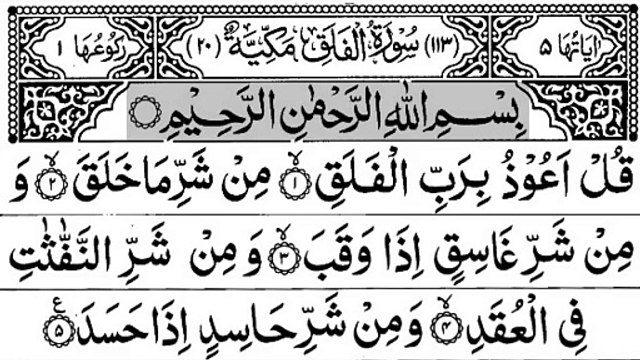 اٰيَاتُهَا ٥ (١١٣) سُوْرَةُ الْفَلَقِ مَكِّيَّةٌ (٢٠) رُكُوْعُهَا ١
بِسْمِ اللّٰهِ الرَّحْمٰنِ الرَّحِيْمِ
قُلْ اَعُوْذُ بِرَبِّ الْفَلَقِ ۙ﴿١﴾ مِنْ شَرِّ مَا خَلَقَ ۙ﴿٢﴾ وَ
مِنْ شَرِّ غَاسِقٍ اِذَا وَقَبَ ۙ﴿٣﴾ وَ مِنْ شَرِّ النَّفّٰثٰتِ
فِي الْعُقَدِ ۙ﴿٤﴾ وَ مِنْ شَرِّ حَاسِدٍ اِذَا حَسَدَ ﴿٥﴾ ع